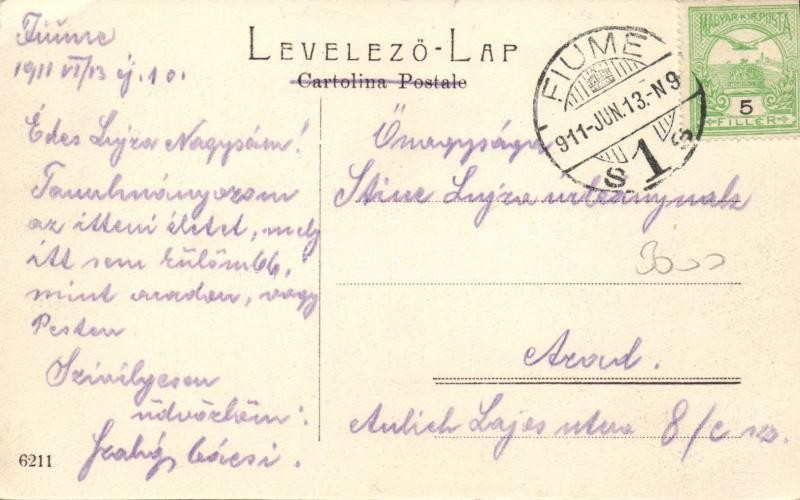 Fiume
1911 VI/13 éj. 10.
LEVELEZŐ-LAP
Cartolina Postale
Édes Lujza Nagysám!
Tanulmányozom
az itteni életet, mely
itt sem külömb,
mint aradon, vagy
Pesten
Szívélyesen
üdvözlöm:
bácsi.
6211
FIUME
911-JUN.13.-N9
S 1 S
MAGYAR KIR. POSTA
5
FILLÉR
Őnagysága
Lujza urleánynak
3000
Arad.
Aulich Lajos utca 8/c sz.